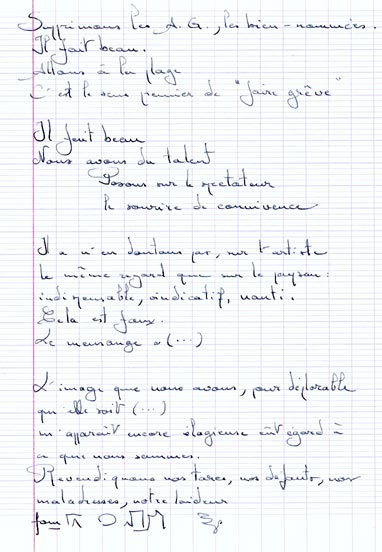 Supprimons les A.G., les bien-nommées.
Il fait beau.
Allons à la plage
C'est le sens premier de "faire grève"
Il fait beau
Nous avons du talent
Posons sur le spectateur
le sourire de connivence
Il a n'en doutons pas, sur l'artiste
le même regard que sur le paysan :
indispensable, vindicatif, nanti.
Cela est faux.
Le mensonge a (...)
L'image que nous avons, pour déplorable
qu'elle soit (...)
m'apparaît encore élogieuse eût égard à
ce que nous sommes.
Revendiquons nos tares, nos défauts, nos
maladresses, notre laideur